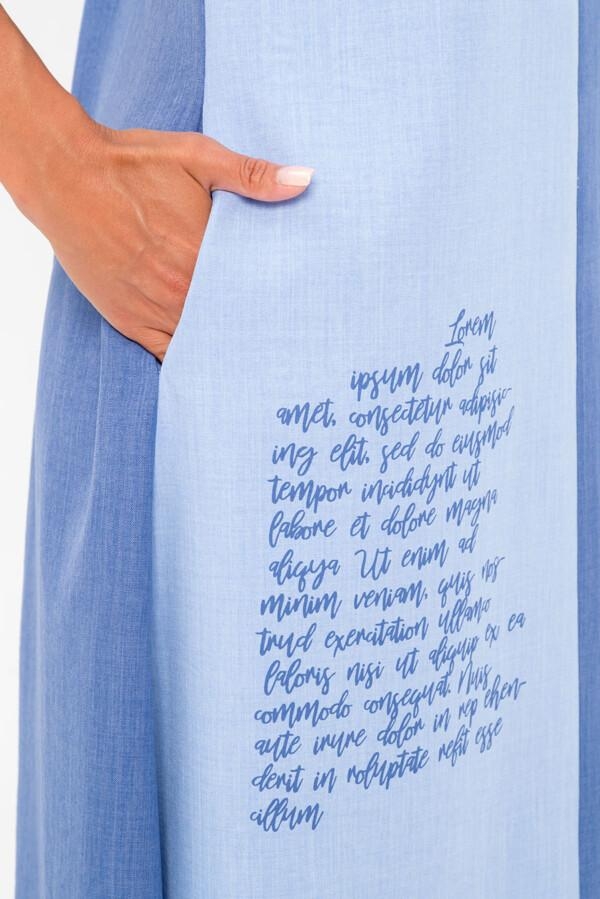 Lorem
ipsum dolor sit
amet, consectetur adipisic-
ing elit, sed do eiusmod
tempor incididynt ut
labore et dolore magna
aliqya Ut enim ad
minim veniam, quis nos-
tryd exercitation ullamo
laloris nisi ut aliquip ex ea
commodo consequat. Nuis
aute irure dolor in rep ehen-
derit in roluptate refit esse
cillum